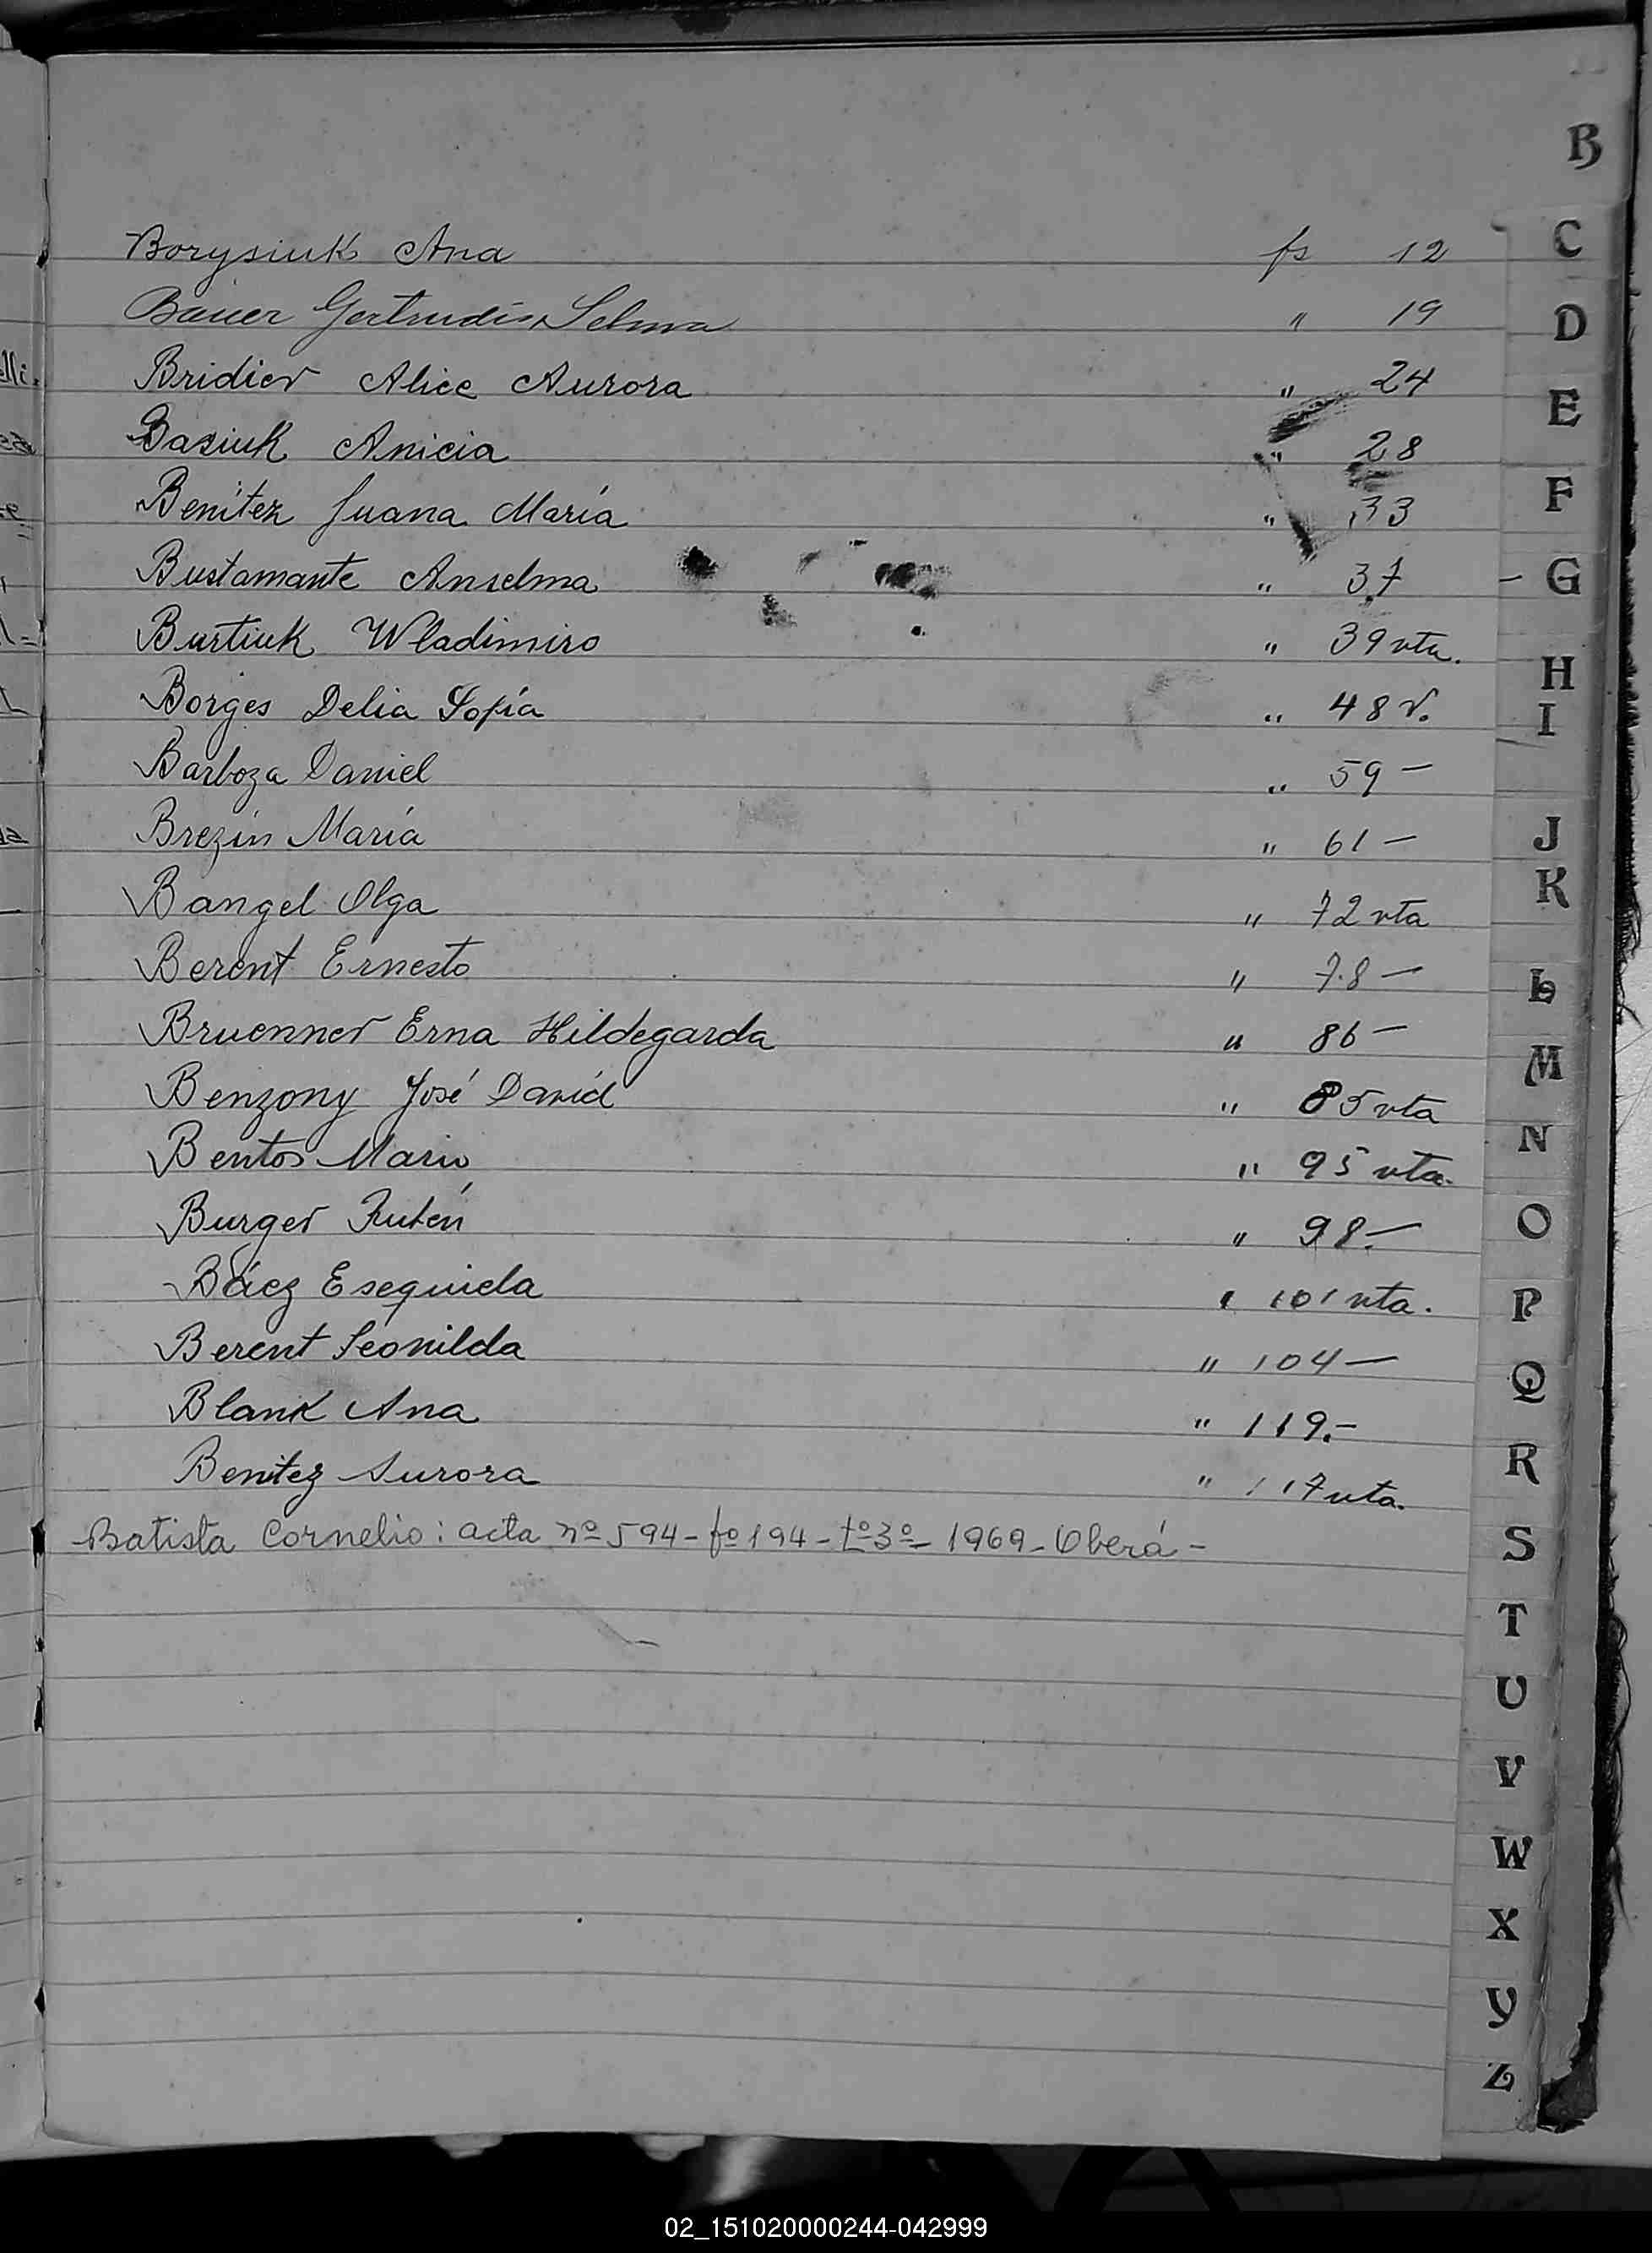 B
Borysiuk Ana fs 12
Bauer Gertrudis Selma " 19
Bridier Alice Aurora " 24
Basiuk Anicia " 28
Benítez Juana María " 33
Bustamante Anselma " 37
Burtiuk Wladimiro " 39 vta.
Borges Delia Sofía " 48 v.
Barboza Daniel " 59 —
Brezin María " 61 —
Bangel Olga " 72 vta
Berent Ernesto " 78 —
Bruenner Erna Hildegarda " 86 —
Benzony José David " 85 vta
Bentos Mario " 95 vta.
Burger Rubén " 98.—
Báez Esequiela " 101 vta.
Berent Leonilda " 104 —
Blank Ana " 119.—
Benitez Aurora " 117 vta.
Batista Cornelio: acta nº 594 - fº 194 - tº 3º - 1969 - Oberá -
C
D
E
F
G
H
I
J
K
L
M
N
O
P
Q
R
S
T
U
V
W
X
Y
Z
02_151020000244-042999